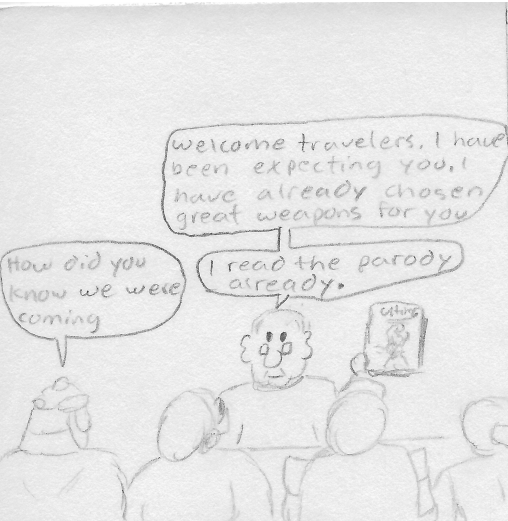 Welcome travelers. I have
been expecting you. I
have already chosen
great weapons for you
How did you
know we were
coming
I read the parody
already.